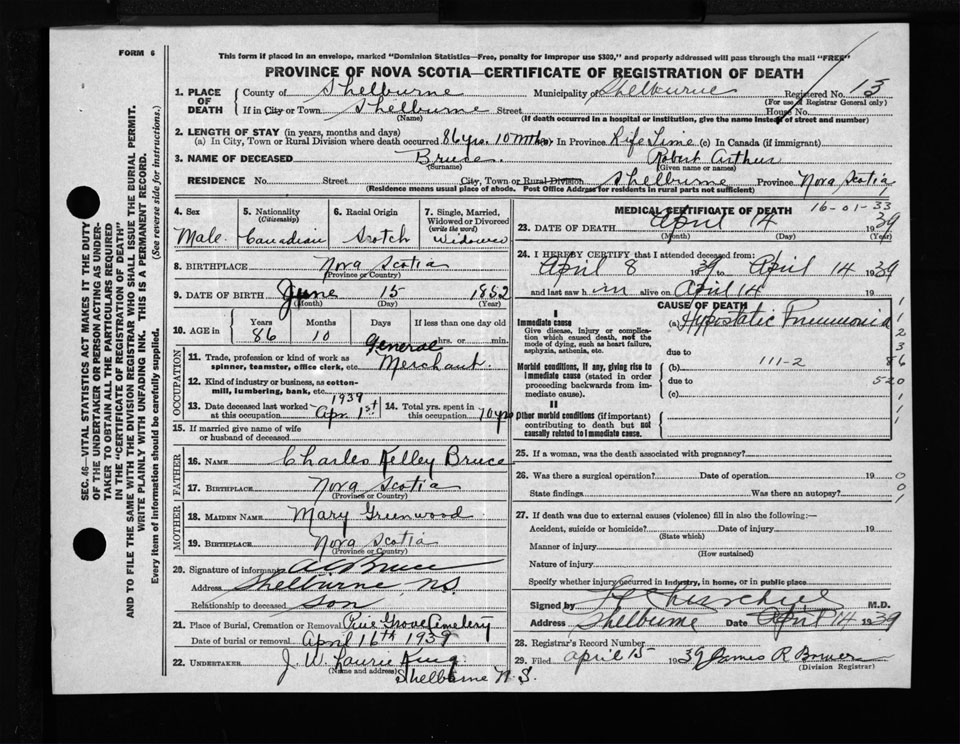 FORM 6
This form if placed in an envelope, marked "Dominion Statistics—Free, penalty for improper use $300," and properly addressed will pass through the mail "FREE"
PROVINCE OF NOVA SCOTIA—CERTIFICATE OF REGISTRATION OF DEATH
SEC. 46—VITAL STATISTICS ACT MAKES IT THE DUTY
OF THE UNDERTAKER OR PERSON ACTING AS UNDER-
TAKER TO OBTAIN ALL THE PARTICULARS REQUIRED
IN THE "CERTIFICATE OF REGISTRATION OF DEATH"
AND TO FILE THE SAME WITH THE DIVISION REGISTRAR WHO SHALL ISSUE THE BURIAL PERMIT.
WRITE PLAINLY WITH UNFADING INK. THIS IS A PERMANENT RECORD.
Every item of information should be carefully supplied. (See reverse side for instructions.)
1. PLACE OF DEATH County of Shelburne Municipality of Shelburne Registered No. 13
(For use of Registrar General only)
If in City or Town Shelburne Street House No.
(Name) (If death occurred in a hospital or institution, give the name instead of street and number)
2. LENGTH OF STAY (in years, months and days)
(a) In City, Town or Rural Division where death occurred 86 yrs. 10 mths (b) In Province Life Time (c) In Canada (if immigrant)
3. NAME OF DECEASED Bruce. Robert Arthur
(Surname) (Given name or names)
RESIDENCE No. Street City, Town or Rural Division Shelburne Province Nova Scotia
(Residence means usual place of abode. Post Office Address for residents in rural parts not sufficient)
4. Sex Male.
5. Nationality (Citizenship) Canadian
6. Racial Origin Scotch
7. Single, Married, Widowed or Divorced (write the word) Widower
8. BIRTHPLACE Nova Scotia
(Province or Country)
9. DATE OF BIRTH June 15 1852
(Month) (Day) (Year)
10. AGE in Years 86 Months 10 Days If less than one day old hrs. or min.
OCCUPATION
11. Trade, profession or kind of work as spinner, teamster, office clerk, etc. General Merchant.
12. Kind of industry or business, as cotton-mill, lumbering, bank, etc.
13. Date deceased last worked at this occupation 1939 Apr. 1st
14. Total yrs. spent in this occupation 70 yrs
15. If married give name of wife or husband of deceased
FATHER
16. NAME Charles Kelley Bruce
17. BIRTHPLACE Nova Scotia
(Province or Country)
MOTHER
18. MAIDEN NAME Mary Greenwood
19. BIRTHPLACE Nova Scotia
(Province or Country)
20. Signature of informant Bruce
Address Shelburne, N.S.
Relationship to deceased Son
21. Place of Burial, Cremation or Removal Pine Grove Cemetery
Date of burial or removal April 16th 1939
22. UNDERTAKER J. W. Laurie King
(Name and address)
Shelburne N.S.
MEDICAL CERTIFICATE OF DEATH
16-01-33
23. DATE OF DEATH April 14 1939
(Month) (Day) (Year)
24. I HEREBY CERTIFY that I attended deceased from:
April 8 1939 to April 14 1939
and last saw h im alive on April 14 1939
CAUSE OF DEATH
I
Immediate cause (a) Hypostatic Pneumonia
Give disease, injury or complication which caused death, not the mode of dying, such as heart failure, asphyxia, asthenia, etc.
due to
Morbid conditions, if any, giving rise to immediate cause (stated in order proceeding backwards from immediate cause).
(b) 111-2
due to
(c)
II
Other morbid conditions (if important) contributing to death but not causally related to immediate cause.
1
2
3
86
520
1
1
1
25. If a woman, was the death associated with pregnancy?
26. Was there a surgical operation? Date of operation 19
State findings Was there an autopsy?
0
0
1
27. If death was due to external causes (violence) fill in also the following:—
Accident, suicide or homicide? Date of injury 19
(State which)
Manner of injury
(How sustained)
Nature of injury
Specify whether injury occurred in industry, in home, or in public place
Signed by Churchill M.D.
Address Shelburne Date April 14 1939
28. Registrar's Record Number
29. Filed April 15 1939 James R Bower
(Division Registrar)